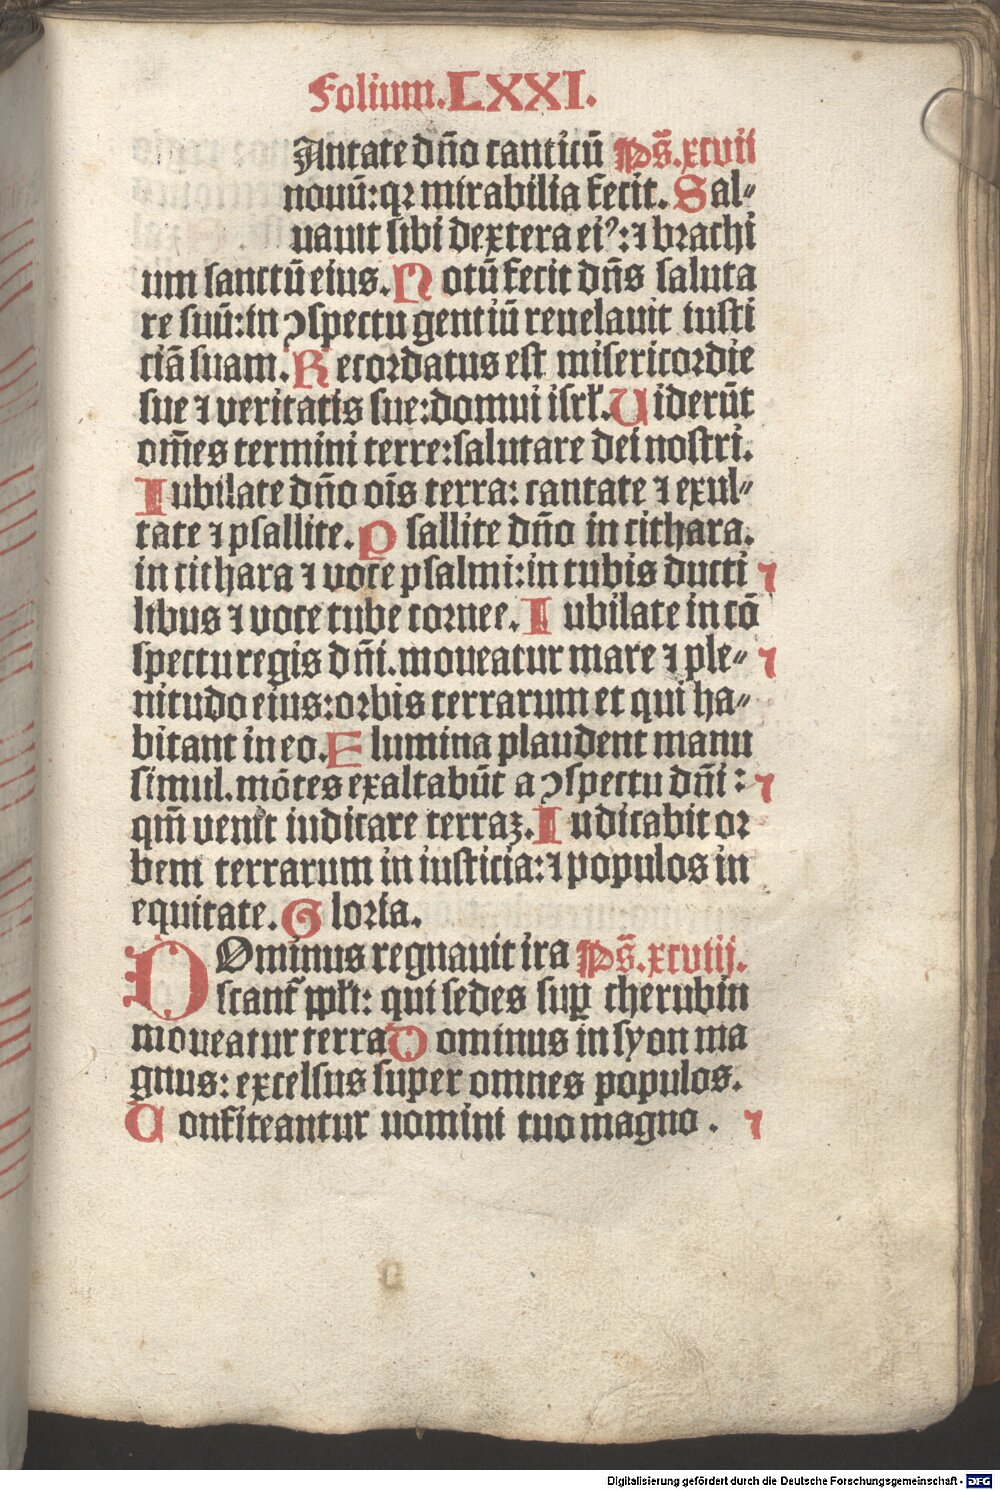 Folium. LXXI.
Antate dño canticū Ps̄. xcvii
nouū: qꝛ mirabilia fecit. Sal⸗
uauit sibi dextera eiꝰ: ⁊ brachi
um sanctū eius. Notū fecit dñs saluta
re suū: in ↄspectu gentiū reuelauit iusti
ciā suam. Recordatus est misericordie
sue ⁊ veritatis sue: domui isrl̄. Uiderūt
om̄es termini terre: salutare dei nostri.
Iubilate dño oīs terra: cantate ⁊ exul⸗
tate ⁊ psallite. Psallite dño in cithara.
in cithara ⁊ voce psalmi: in tubis ducti ⁊
libus ⁊ voce tube cornee. Iubilate in cō
spectu regis dñi. moueatur mare ⁊ ple⸗ ⁊
nitudo eius: orbis terrarum et qui ha⸗
bitant in eo. Flumina plaudent manu
simul. mōtes exaltabūt a ↄspectu dñi: ⁊
qm̄ venit iudicare terraꝫ. Iudicabit or
bem terrarum in iusticia: ⁊ populos in
equitate. Gloria.
DOminus regnauit ira Ps̄. xcviij.
scant᷑ ppl̄i: qui sedes suꝑ cherubin
moueatur terra Dominus in syon ma
gnus: excelsus super omnes populos.
Confiteantur nomini tuo magno. ⁊
Digitalisierung gefördert durch die Deutsche Forschungsgemeinschaft - DFG